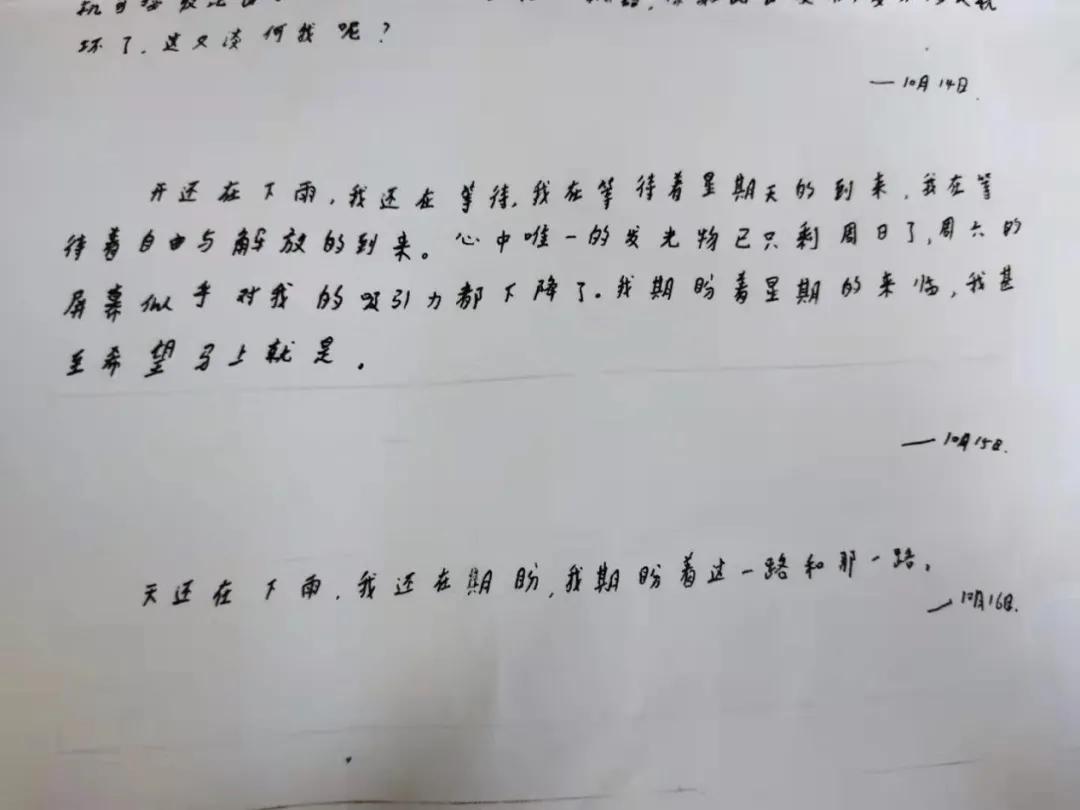 坏了,这又谈何我呢?
—10月14日.
开还在下雨,我还在等待,我在等待着星期天的到来,我在等
待着自由与解放的到来。心中唯一的发光物已只剩周日了,周六的
屏幕似乎对我的吸引力都下降了。我期盼着星期的来临,我甚
至希望马上就是.
—10月15日.
天还在下雨,我还在期盼,我期盼着这一路和那一路.
—10月16日.